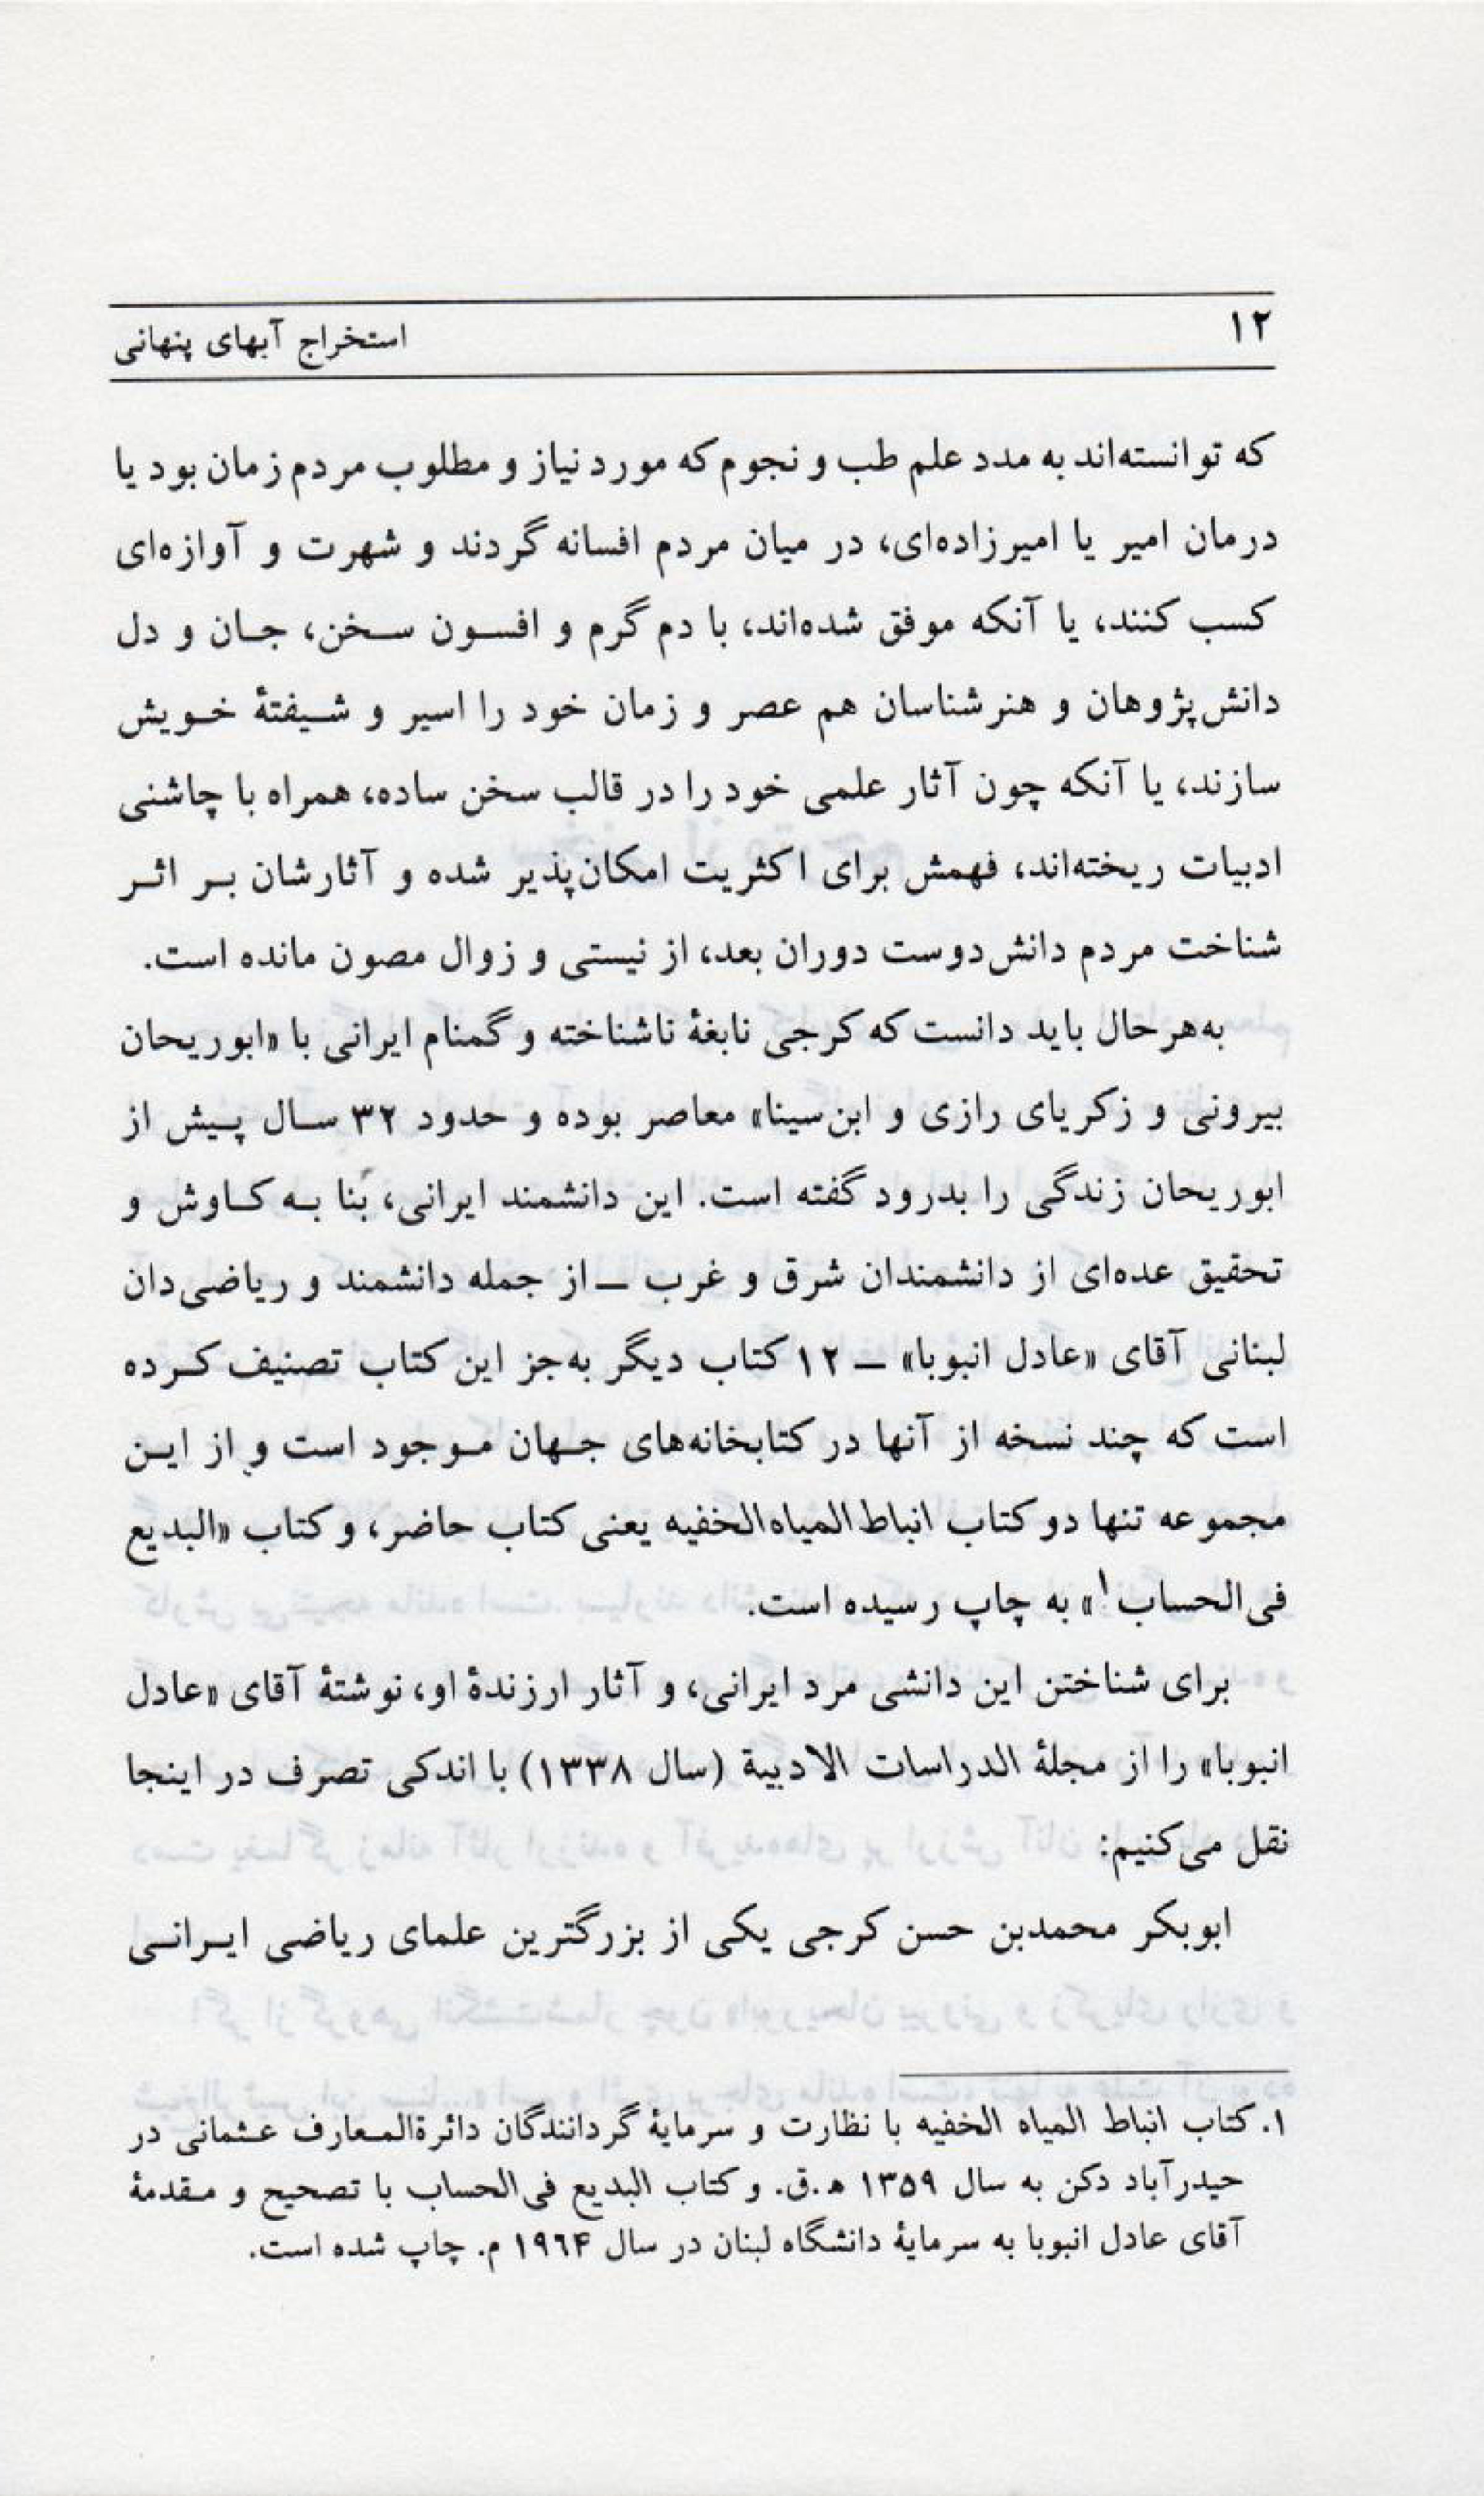 ۱۲
استخراج آبهای پنهانی
که توانسته‌اند به مدد علم طب و نجوم که مورد نیاز و مطلوب مردم زمان بود یا
درمان امیر یا امیرزاده‌ای، در میان مردم افسانه گردند و شهرت و آوازه‌ای
کسب کنند، یا آنکه موفق شده‌اند، با دم گرم و افسون سخن، جان و دل
دانش‌پژوهان و هنرشناسان هم عصر و زمان خود را اسیر و شیفتهٔ خویش
سازند، یا آنکه چون آثار علمی خود را در قالب سخن ساده، همراه با چاشنی
ادبیات ریخته‌اند، فهمش برای اکثریت امکان‌پذیر شده و آثارشان بر اثر
شناخت مردم دانش‌دوست دوران بعد، از نیستی و زوال مصون مانده است.
به‌هرحال باید دانست که کرجی نابغهٔ ناشناخته و گمنام ایرانی با «ابوریحان
بیرونی و زکریای رازی و ابن‌سینا» معاصر بوده و حدود ۳۲ سال پیش از
ابوریحان زندگی را بدرود گفته است. این دانشمند ایرانی، بَنا به کاوش و
تحقیق عده‌ای از دانشمندان شرق و غرب ــ از جمله دانشمند و ریاضی‌دان
لبنانی آقای «عادل انبوبا» ــ ۱۲ کتاب دیگر به‌جز این کتاب تصنیف کرده
است که چند نسخه از آنها در کتابخانه‌های جهان موجود است و از این
مجموعه تنها دو کتاب انباط‌المیاه‌الخفیه یعنی کتاب حاضر، و کتاب «البدیع
فی‌الحساب۱» به چاپ رسیده است.
برای شناختن این دانشی مرد ایرانی، و آثار ارزندهٔ او، نوشتهٔ آقای «عادل
انبوبا» را از مجلهٔ الدراسات الادبیة (سال ۱۳۳۸) با اندکی تصرف در اینجا
نقل می‌کنیم:
ابوبکر محمدبن حسن کرجی یکی از بزرگترین علمای ریاضی ایرانی
۱. کتاب انباط المیاه الخفیه با نظارت و سرمایهٔ گردانندگان دائرةالمعارف عثمانی در
حیدرآباد دکن به سال ۱۳۵۹ ه‍.ق. و کتاب البدیع فی‌الحساب با تصحیح و مقدمهٔ
آقای عادل انبوبا به سرمایهٔ دانشگاه لبنان در سال ۱۹۶۴ م. چاپ شده است.